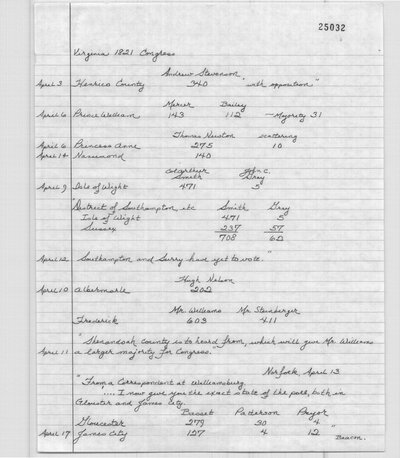 25032
Virginia 1821 Congress
Andrew Stevenson
April 3 Henrico County 340 "with opposition"
Mercer Bailey
April 6 Prince William 143 112 —Majority 31
Thomas Newton scattering
April 6 Princess Anne 275 10
April 14 Nansemond 140
Arthur Smith John C. Gray
April 9 Isle of Wight 471 5
District of Southampton, etc Smith Gray
Isle of Wight 471 5
Sussex 237 57
708 62
April 12 Southampton and Surry have yet to vote."
Hugh Nelson
April 10 Albermarle 202
Mr. Williams Mr. Steinberger
Frederick 603 411
"Shenandoah County is to heard from, which will give Mr. Williams
April 11 a larger majority for Congress.
Norfolk, April 13
"From a Correspondent at Williamsburg
".... I now give you the exact state of the poll, both in
Gloucester and James City.
Basset Patterson Pryor
Gloucester 279 30 4
April 17 James City 127 4 12 " Beacon.